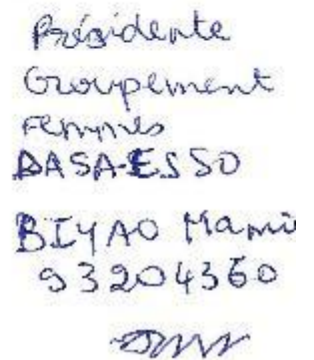 Présidente
Groupement
Femmes
DASA-ESSO
BIYAO Mami
93204360